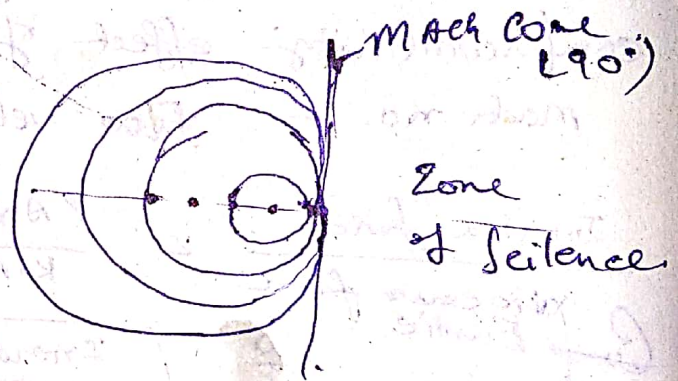 MACh Come
(90°)
Zone
of Seilence